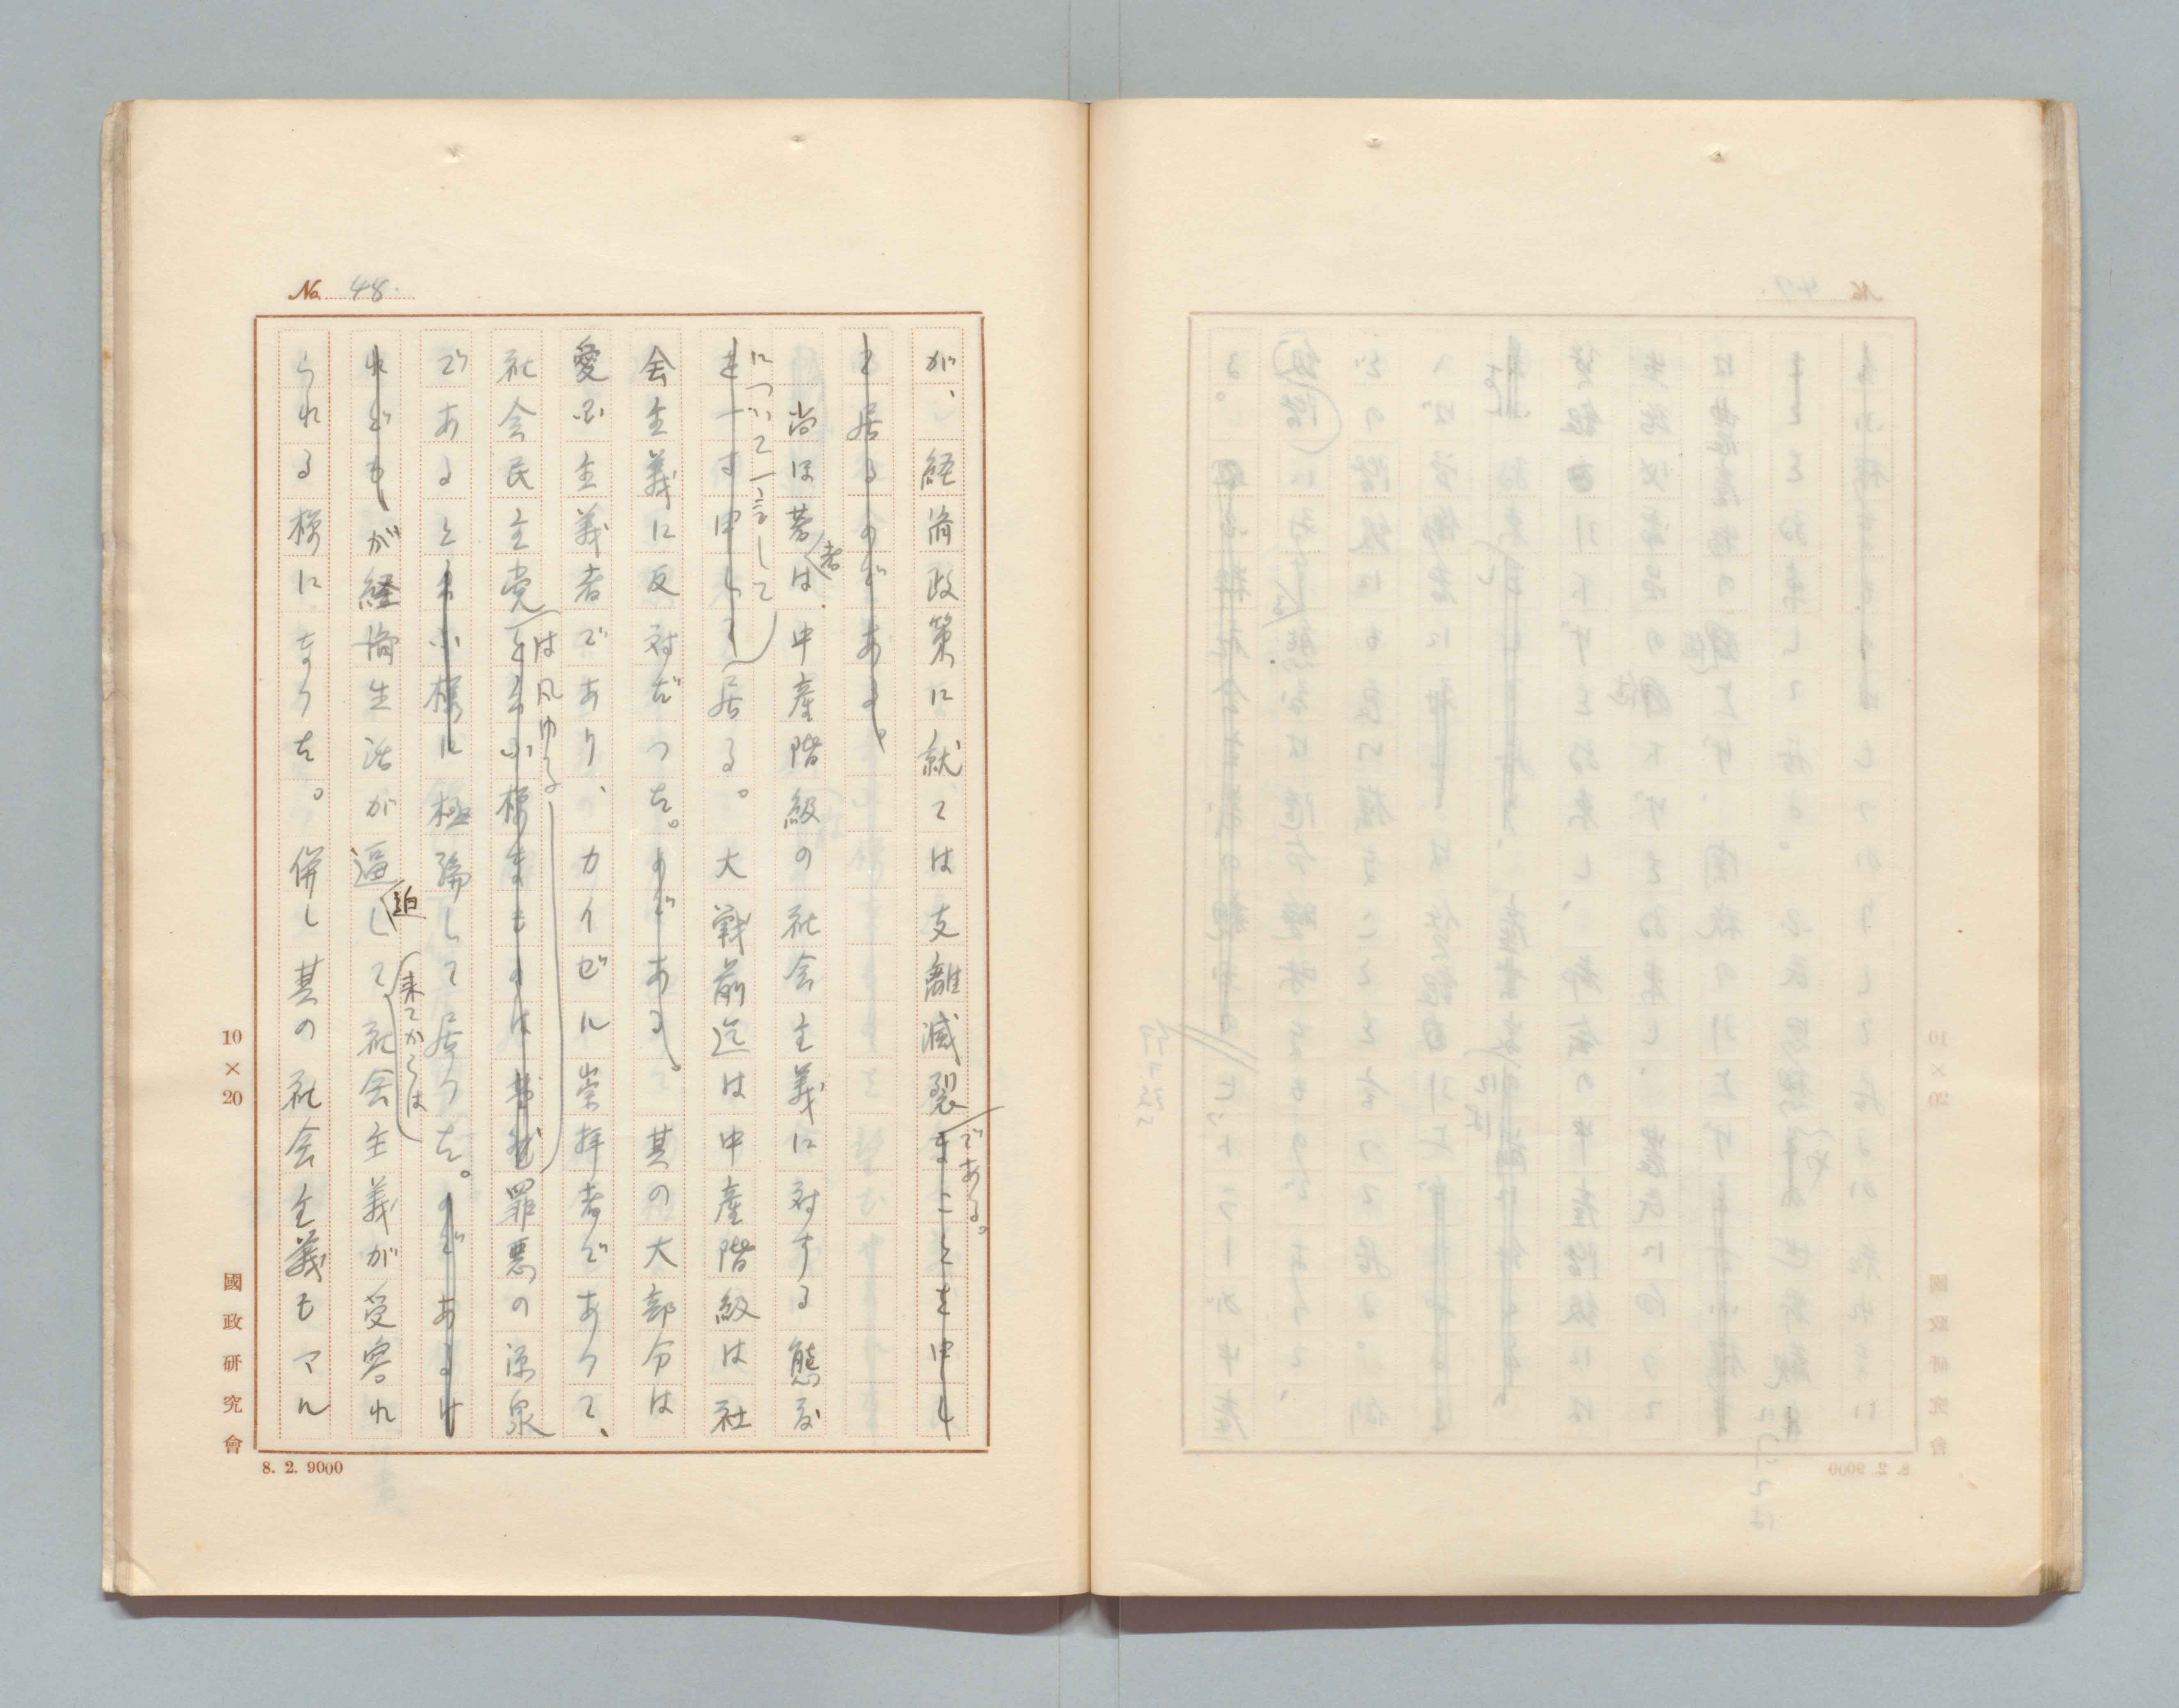 No. 48.
が、経済政策に就ては支離滅裂なことを申し
である。
て居るのである。
尚ほ著者は中産階級の社会主義に対する態度
について一言して
を一寸申して居る。大戦前迄は中産階級は社
会主義に反対だつた。のである。其の大部分は
愛国主義者であり、カイゼル崇拝者であつて、
社会民主党と云ふ様なものは罪悪の源泉
は凡ゆる
であると云ふ様に極論して居つた。のであるけ
れどもが経済生活が逼迫して社会主義が受容れ
来てからは
られる様になつた。併し其の社会主義もマル
10×20
國政研究會
8. 2. 9000